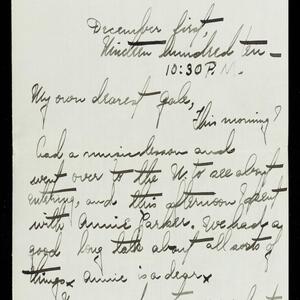 December first,
Nineteen hundred ten—
10:30 P.M.
My own dearest Gale,
This morning I
had a music lesson and
went over to the U. to see about
entering, and this afternoon I spent
with Annie Parker. We had a
good long talk about all sorts of
things. Annie is a dear.